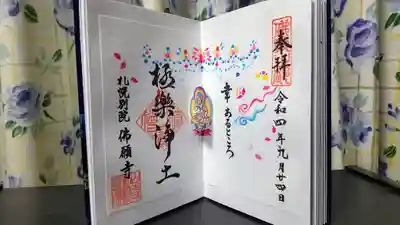 奉拝
令和四年九月廿四日
幸あるところ
極樂浄土
札幌別院 佛願寺